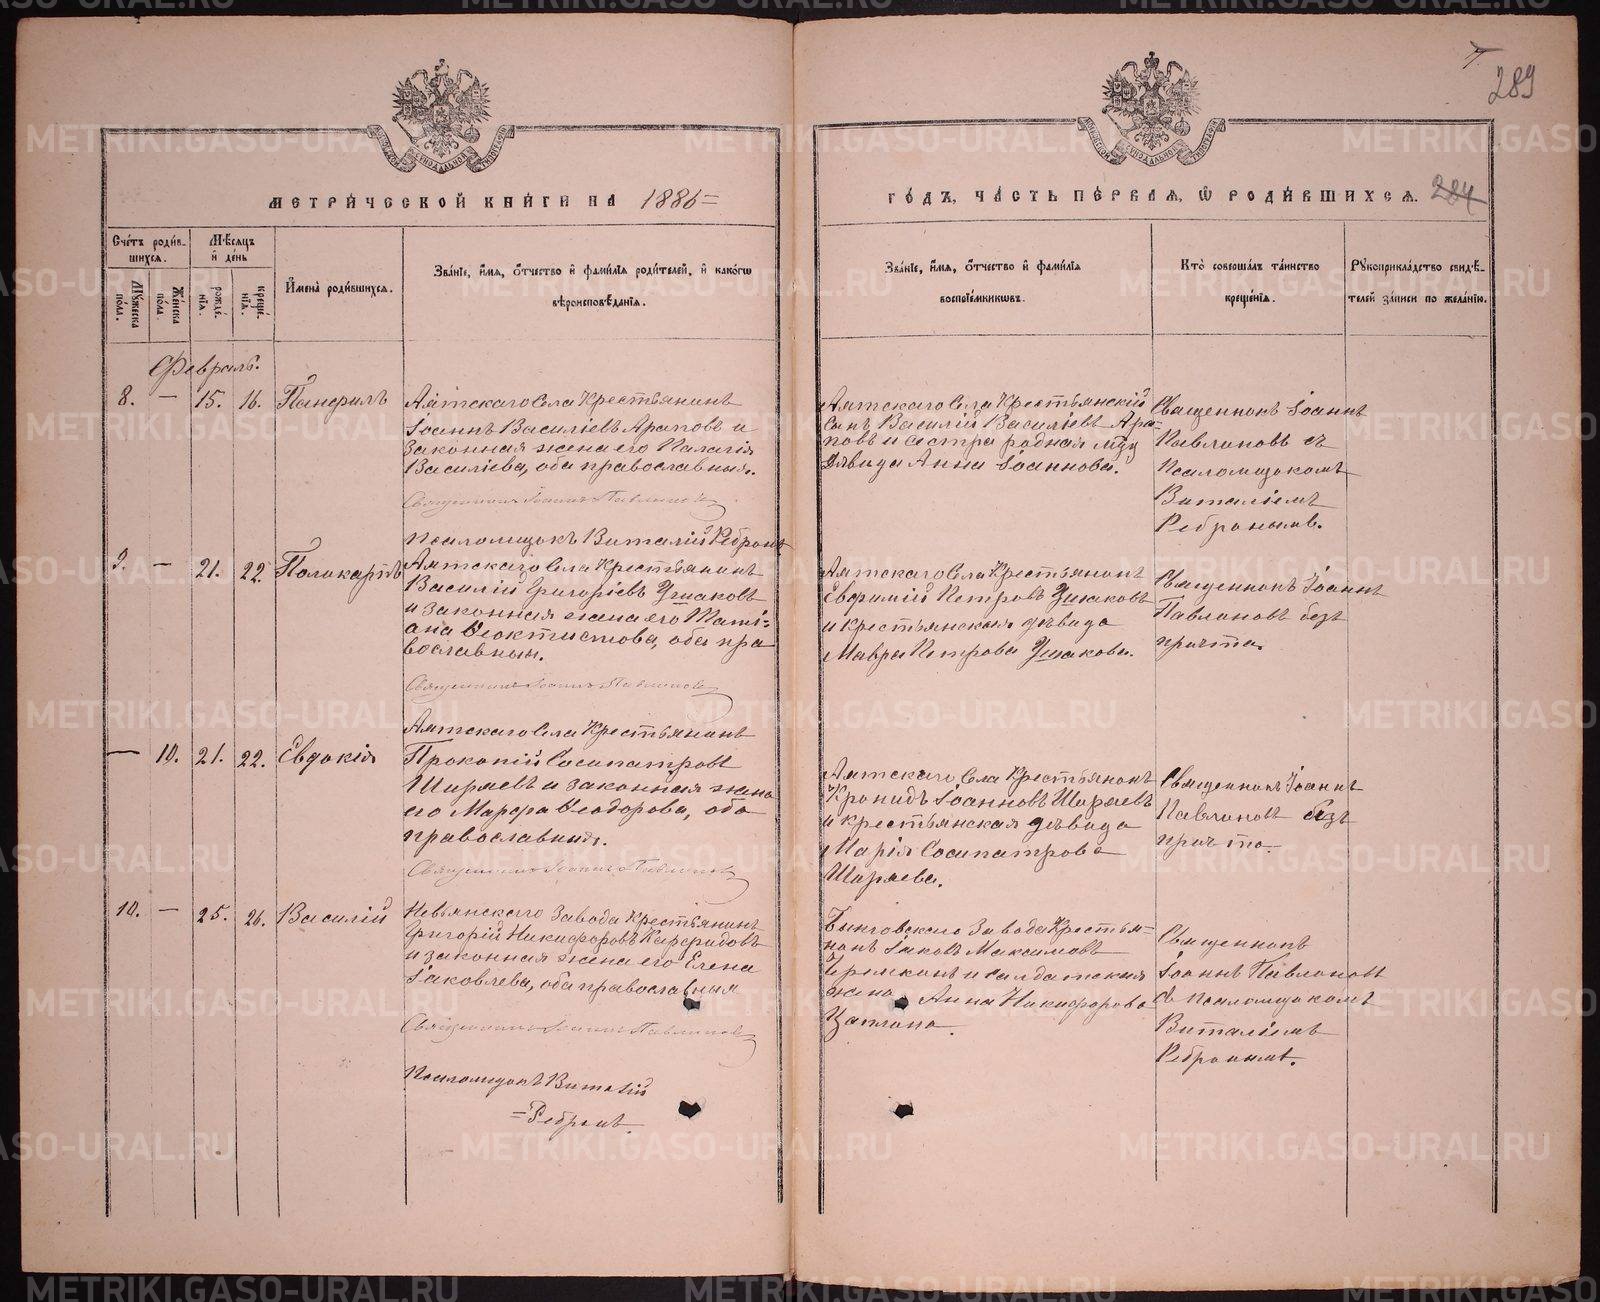 289
МЕТРИ́ЧЕСКОЙ КНИ́ГИ НА 1886=
ГО́ДЪ, ЧА́СТЬ ПЕ́РВАЯ, Ѿ РОДИ́ВШИХСЯ. 284
Сче́тъ роди́в-
шихся.
Мѣ́сяцъ
и҆ де́нь
Мꙋ́жеска
по́ла.
Же́нска
по́ла.
рожде́-
нїя.
креще́-
нїя.
И҆мена̀ роди́вшихся.
Зва́нїе, и҆́мя, ѻ҆́тчество и҆ фами́лїя роди́телей, и҆ како́гѡ
вѣроисповѣ́данїя.
Зва́нїе, и҆́мя, ѻ҆́тчество и҆ фами́лїя
воспрїе́мникѡвъ.
Кто̀ соверша́лъ та́инство
креще́нїя.
Рꙋкоприкла́дство свидѣ́-
телей за́писи по жела́нїю.
Февраль.
8. — 15. 16. Памфилъ
Аятскаго Села Крестьянинъ
Іоаннъ Василіевъ Араповъ и
законная жена его Палагія
Василіева, оба православныя.
Священникъ Іоаннъ Павлиновъ
Псаломщикъ Виталій Ребринъ
Аятскаго Села Крестьянскій
Сынъ Василій Василіевъ Ара-
повъ и сестра родная ему
Дѣвица Анна Іоаннова.
Священникъ Іоаннъ
Павлиновъ съ
Псаломщикомъ
Виталіемъ
Ребринымъ.
9. — 21. 22. Поликарпъ
Аятскаго Села Крестьянинъ
Василій Григоріевъ Ушаковъ
и законная жена его Таті-
ана Ѳеоктистова, оба пра
вославныи.
Священникъ Іоаннъ Павлиновъ
Аятскаго Села Крестьянинъ
Евфимій Петровъ Ушаковъ
и крестьянская дѣвица
Мавра Петрова Ушакова.
Священникъ Іоаннъ
Павлиновъ безъ
причта.
— 10. 21. 22. Евдокія
Аятскаго Села Крестьянинъ
Прокопій Сосипатровъ
Ширяевъ и законная жена
его Марфа Ѳеодорова, оба
православныя.
Священникъ Іоаннъ Павлиновъ
Аятскаго Села Крестьянинъ
Кронидъ Іоанновъ Ширяевъ
и крестьянская дѣвица
Марія Сосипатрова
Ширяева.
Священникъ Іоаннъ
Павлиновъ безъ
причта.
10. — 25. 26. Василій
Невьянскаго Завода Крестьянинъ
Григорій Никифоровъ
и законная жена его Елена
Іаковлева, оба православныя
Священникъ Іоаннъ Павлиновъ
Псаломщикъ Виталій
=Ребринъ.
Быньговскаго Завода Крестья=
нинъ Іаковъ Максимовъ
и солдатская
жена Анна Никифорова
Священникъ
Іоаннъ Павлиновъ
съ псаломщикомъ
Виталіемъ
Ребринымъ.
METRIKI.GASO-URAL.RU